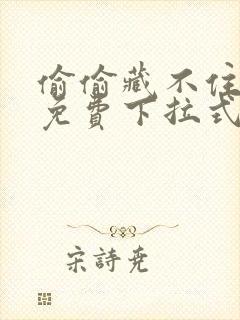 偷偷藏不住
免費下拉式
宋詩堯